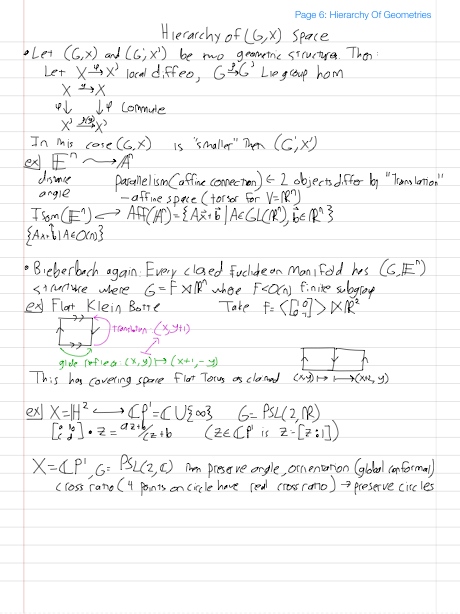 Page 6: Hierarchy Of Geometries
Hierarchy of (G,X) Space
• Let (G,X) and (G',X') be two geometric structures. Then:
Let X →φ X' local diffeo, G →ρ G' Lie group hom
X →g X
φ↓ ↓φ Commute
X' →ρ(g) X'
In this case (G,X) is "smaller" then (G',X')
ex] 𝔼ⁿ ⟿ 𝔸ⁿ
distance parallelism (affine connection) ← 2 objects differ by "Translation"
angle – affine space (torsor for V=ℝⁿ)
Isom(𝔼ⁿ) ↪ Aff(𝔸ⁿ) = {Ax⃗+b⃗ | A∈GL(ℝⁿ), b⃗∈ℝⁿ}
{Ax+b | A∈O(n)}
• Bieberbach again: Every closed Euclidean Manifold has (G,𝔼ⁿ)
structure where G = F⋉ℝⁿ where F<O(n) finite subgroup
ex] Flat Klein Bottle Take F=<[
translation: (x,y+1)
glide reflect: (x,y) ↦ (x+1,-y)
This has covering space Flat Torus as claimed (x,y) ↦ (x+2, y)
ex] X=ℍ² ↪ ℂP¹=ℂ∪{∞} G= PSL(2,ℝ)
[a b c d] • z = az+b/cz+b (z∈ℂP¹ is z=[z:1])
X=ℂP¹, G= PSL(2,ℂ) then preserve angle, orientation (global conformal)
cross ratio (4 points on circle have real cross ratio) → preserve circles